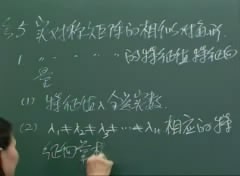 §5 实对称矩阵的相似对角形
1 〃 〃 〃 〃 的特征值特征向
量
(1) 特征值全为实数.
(2) λ₁≠λ₂≠λ₃≠…≠λₙ 相应的特
征向量